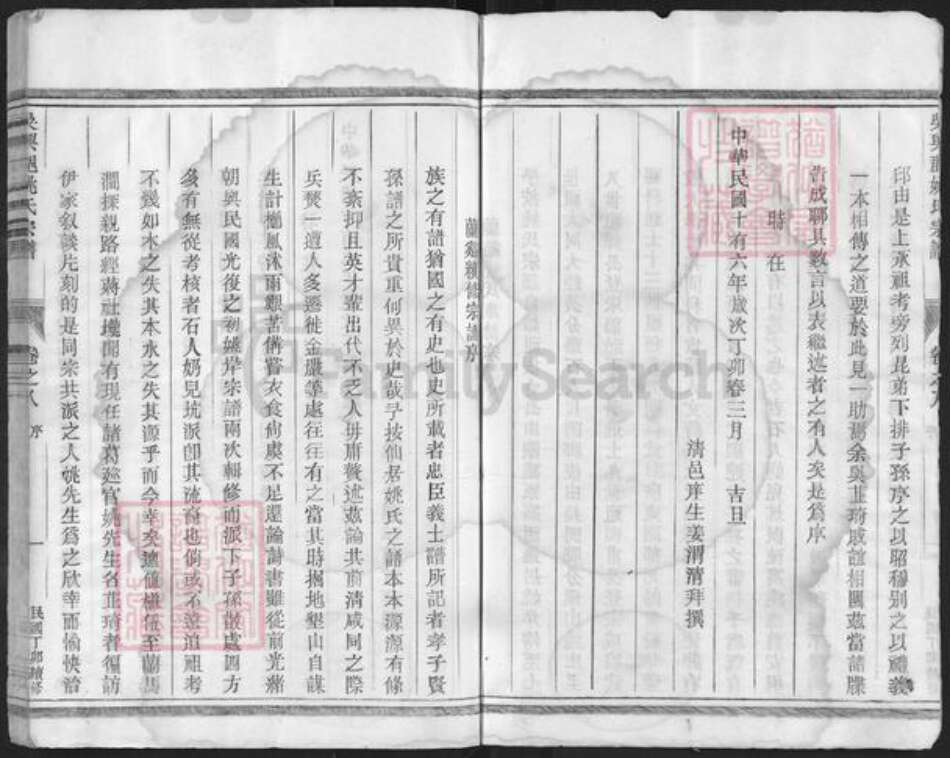 邱由是上承祖考旁列昆弟下排子孫序之以昭穆別之以禮義
一本相傳之道要於此見一助焉余與正琦戚誼相關茲當譜牒
告成聊具數言以表繼述者之有人矣是爲序
時在
中華民國十有六年歲次丁卯春三月 吉旦
清邑庠生姜渭清拜撰
蘭谿續修宗譜序
族之有譜猶國之有史也史所載者忠臣義士譜所記者孝子賢
孫譜之所貴重何異於史哉予按仙居姚氏之譜本本源源有條
不紊抑且英才輩出代不乏人毋庸贅述茲論其前清咸同之際
兵燹一遭人多遷徙金嚴等處往往有之當其時掘地墾山自謀
生計櫛風沐雨艱苦備嘗衣食尙虞不足遑論詩書雖從前光緒
朝與民國光復之初 宗譜兩次輯修而派下子孫散處四方
多有無從考核者石人奶兒坑派卽其流裔也倘或不遠追祖考
不幾如木之失其本水之失其源乎而今幸矣 至蘭
澗探親路經蔣社壇聞有現任諸葛 官姚先生名正琦者往訪
伊家叙談片刻的是同宗共派之人姚先生爲之欣幸而愉快洽
卷之八 序
一
民國丁卯續修
姚氏宗譜
FamilySearch